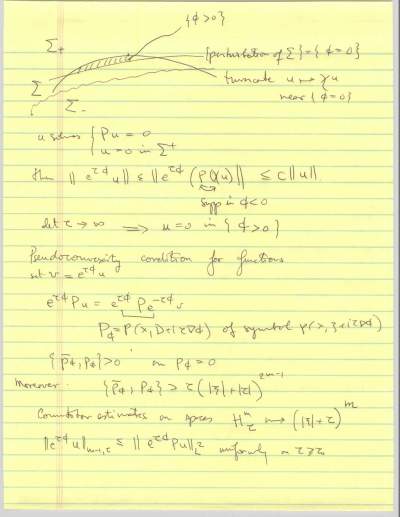 {ϕ>0}
Σ+
{perturbation of Σ} = {ϕ=0}
Σ
truncate u ⟿ χu
near {ϕ=0}
Σ-
u solves { Pu = 0
u = 0 in Σ+
then ‖e^{τϕ}u‖ ≤ ‖e^{τϕ}(P(χu))‖ ≤ C‖u‖
supp in ϕ<0
let τ → ∞ ⟹ u=0 in {ϕ>0}
Pseudoconvexity condition for functions
set v = e^{τϕ}u
e^{τϕ}Pu = e^{τϕ}Pe^{-τϕ}v
P_ϕ = P(x, D+iτ∇ϕ) of symbol p(x, ξ+iτ∇ϕ)
{p̄_ϕ, p_ϕ} > 0 on p_ϕ = 0
Moreover {p̄_ϕ, p_ϕ} > τ(|ξ|+|τ|)^{2m-1}
estimates on spaces H^m_τ ⟿ (|ξ|+τ)^m
‖e^{τϕ}u‖_{m-1,τ} ≤ ‖e^{τϕ}Pu‖_{L^2} uniformly in τ≥τ₀